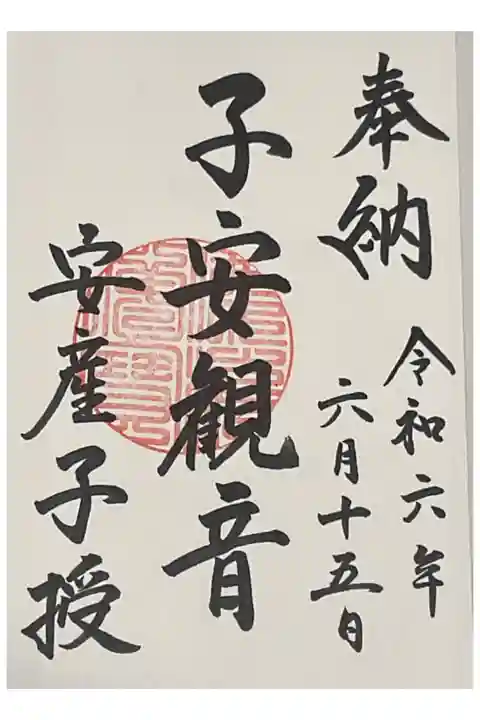 奉納
令和六年
六月十五日
子安観音
安産子授